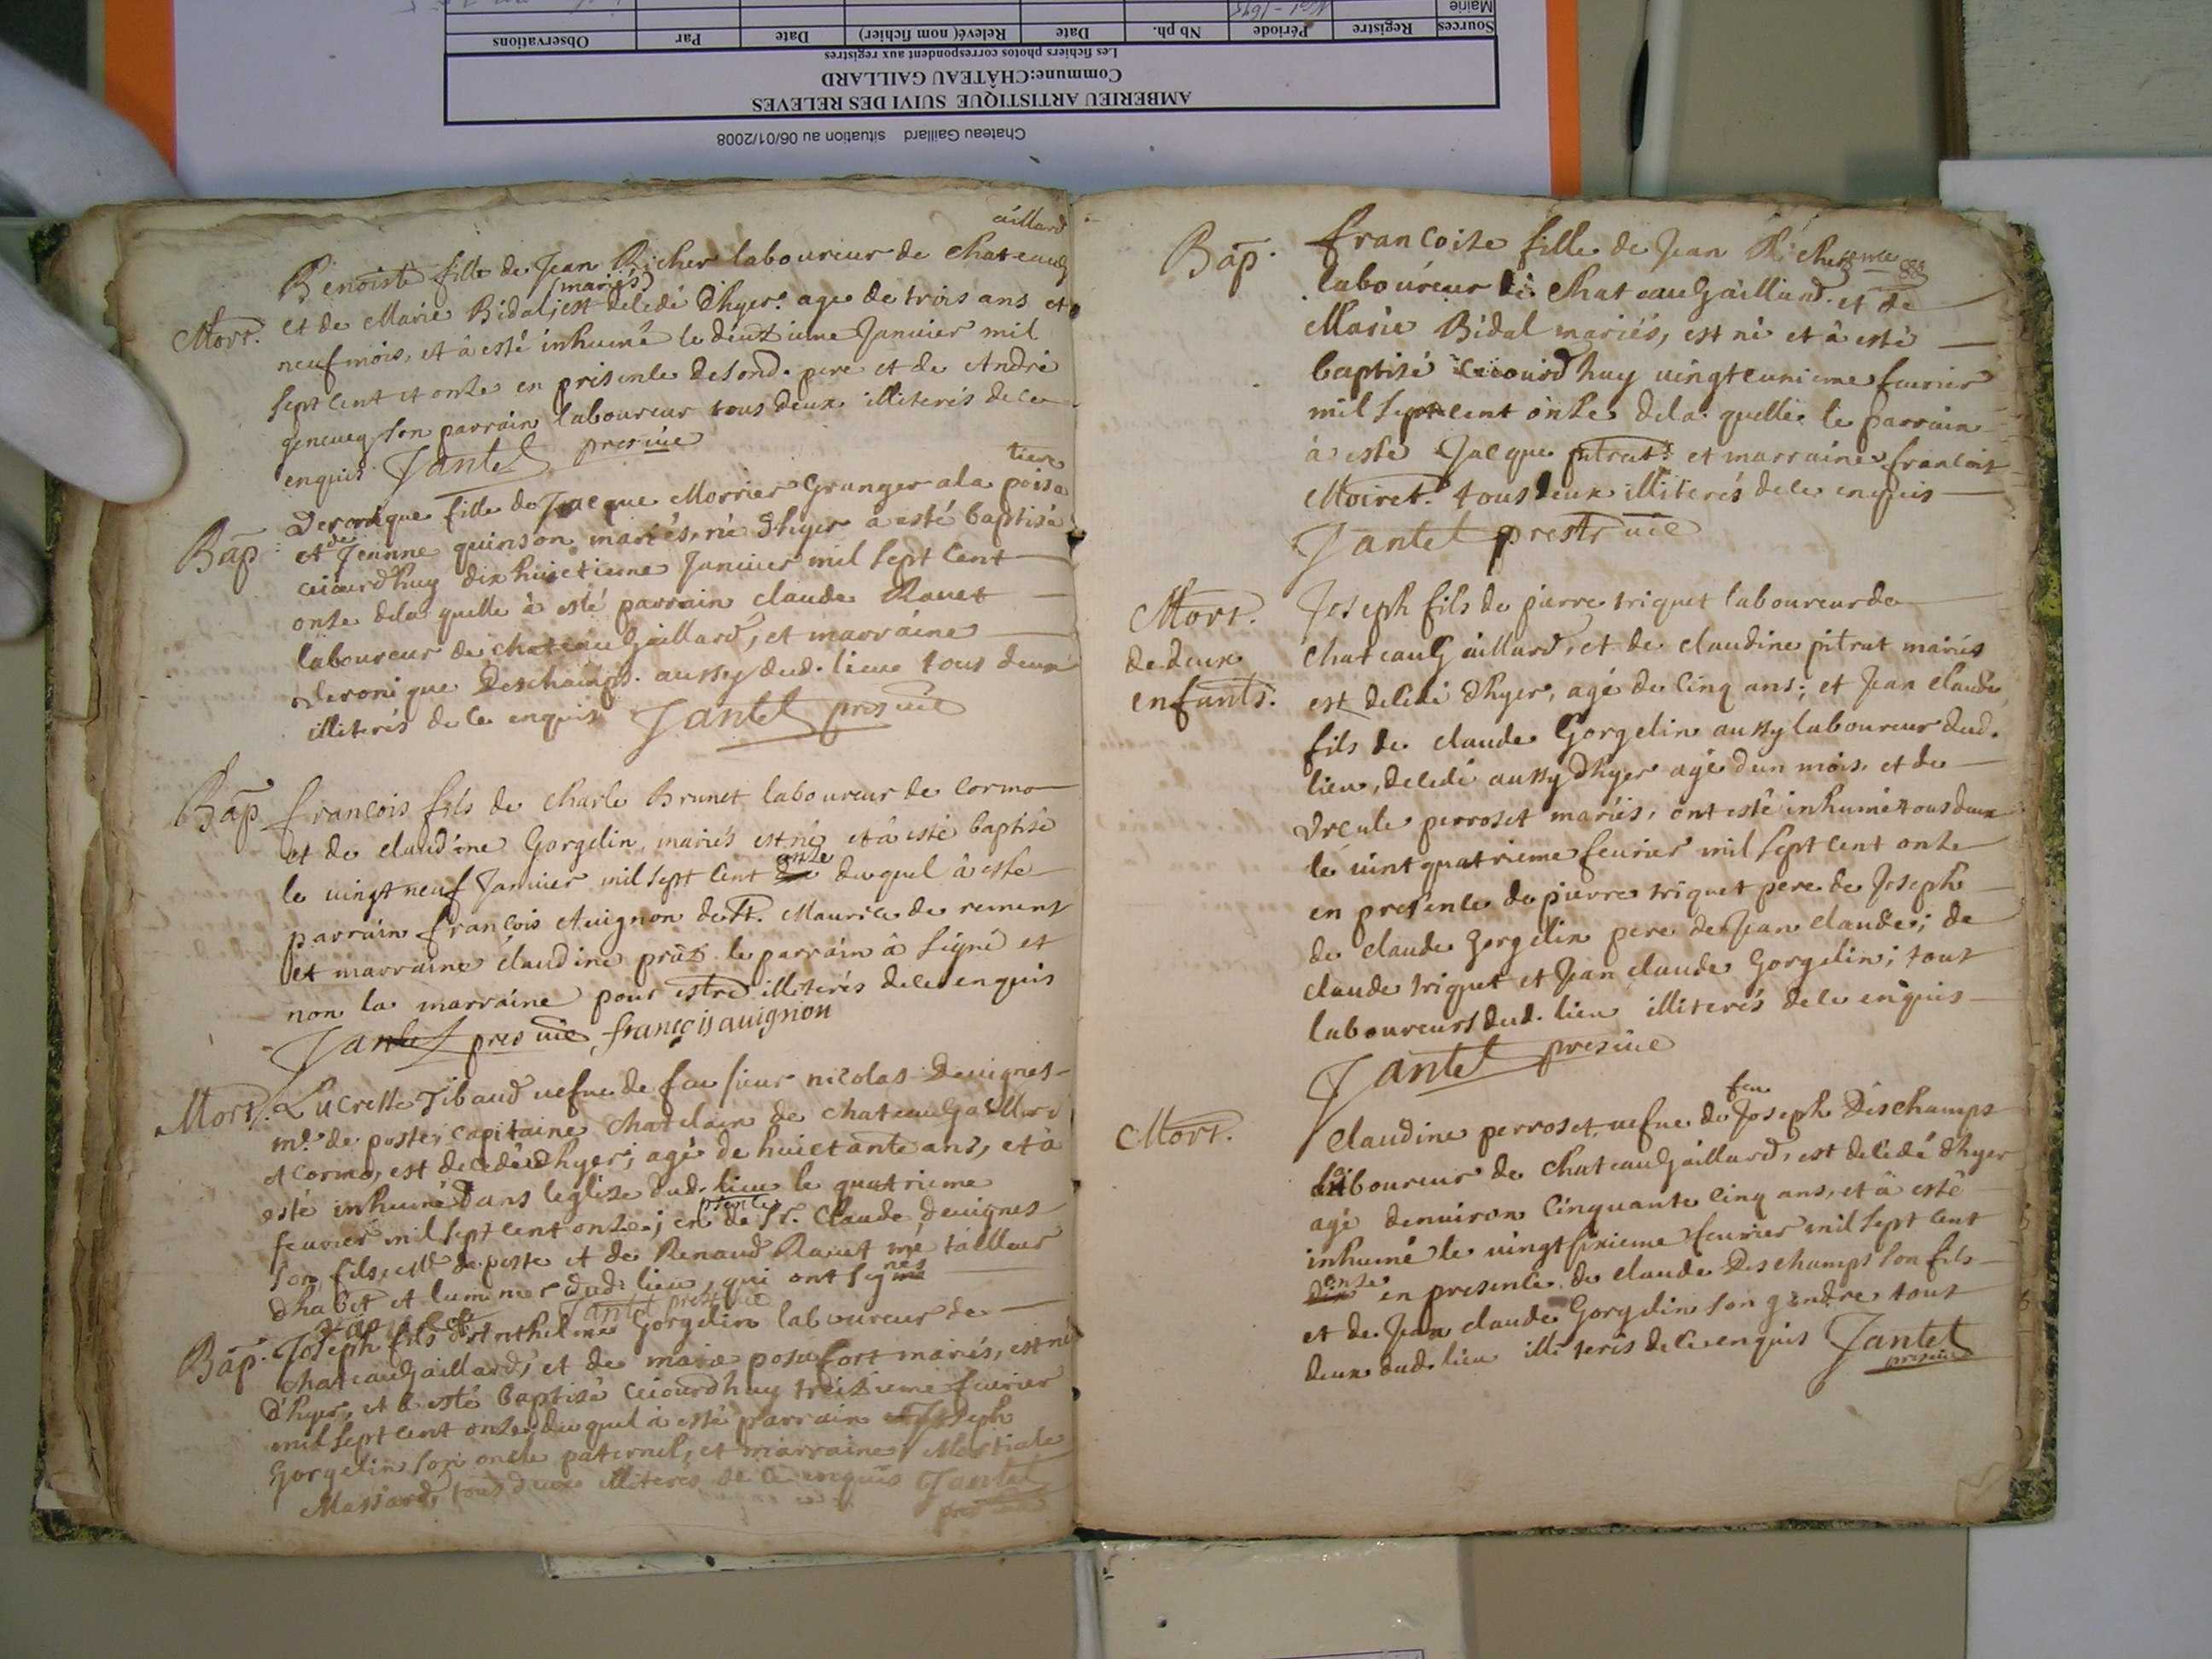 Chateau Gaillard situation au 06/01/2008
AMBERIEU ARTISTIQUE SUIVI DES RELEVES
Commune:CHÂTEAU GAILLARD
Les fichiers photos correspondent aux registres
Sources Registre Période Nb ph. Date Relevé( nom fichier) Date Par Observations
Mairie
aillard
Benoiste fille de Jean Richer laboureur de Chateaug
(mariés)
Mort. et de Marie Bidal, est decedé dhyer. agee de trois ans et
neuf mois, et à esté inhumé le deuzieme Januier mil
sept cent et onze en presence desond. pere et de André
geneuey son parrain laboureur tous deux illiterés de ce
enquis Jantet pres uic
tiere
Bap: Veronique fille de Jacque Morrier Granger a la poisa
et de Jeanne quinson mariés, né dhyer a esté baptisé
ceiourdhuy dix huictieme Januier mil sept cent
onze de la quelle à esté parrain claude Rauet
laboureur de chateauGaillard, et marraine
Veronique Deschamps. aussy dud. lieue tous deux
illiterés de ce enquis Jantet pres uic
Bap francois fils de Charle Brunet laboureur de Cormo
et de claudine Gorgelin, mariés est né et à esté baptisé
onze
le uingt neuf Januier mil sept cent du quel à esté
parrain francois Auignon de St. Maurice de rement
et marraine claudine prat. le parrain à signé et
non la marraine pour estre illiterés de ce enquis
Jantet pres uic francois auignon
Mort. Lucresse Tibaud uefue de feu sieur nicolas Deuignes
me. de poste, capitaine chatelain de chateauGaillard
et cormo, est decedée dhyer; agé de huictante ans, et à
esté inhumé dans leglise dud. lieu le quatrieme
pnce
feurier mil sept cent onze; en de Sr. Claude deuignes
son fils, me de poste et de Renaud Rauet me tailleur
dhabit et luminier dud. lieu, qui ont signés
Jantet prest uic
Bap. Joseph fils dAnthelme Gorgelin laboureur de
chateauGaillard, et de marie posafort mariés, est né
dhyer, et à esté baptisé ceiourdhuy treizieme feurier
mil sept cent onze, du quel à esté parrain Joseph
Gorgelin son oncle paternel, et marraine Martiale
Massard, tous deux illiteres de ce enquis Jantet
Bap. francoise fille de Jean Richer
laboureur de chateauGaillard. et de
Marie Bidal mariés, est né et à esté
baptisé ceiourdhuy uingteunieme feurier
mil sept cent onze de la quelle le parrain
à esté Jacque pitrat. et marraine francoise
Moiret. tous deux illiterés de ce enquis
Jantet prestr uic
Mort. Joseph fils de pierre triquet laboureur de
de deux chateauGaillard, et de claudine pitrat mariés
enfants. est decedé dhyer, agé de cinq ans; et Jean claude
fils de claude Gorgelin aussy laboureur dud.
lieu, decedé aussy dhyer agé dun mois et de
Vrcule perroset mariés, ont esté inhumé tous deux
le uint quatrieme feurier mil sept cent onze
en presence de pierre triquet pere de Joseph
de claude Gorgelin pere de Jean claude; de
claude triquet et Jean claude Gorgelin; tout
laboureurs dud. lieu illiterés de ce enquis
Jantet pres uic
feu
Mort. Claudine perroset uefue de Joseph Deschamps
laboureur de chateauGaillard, est decedé dhyer
agé denuiron cinquante cinq ans, et à esté
inhumé le uingt sixieme feurier mil sept cent
onze
en presence de claude Deschamps son fils
et de Jean claude Gorgelin son gendre tout
deux dud. lieu illiterés de ce enquis Jantet
pres uic